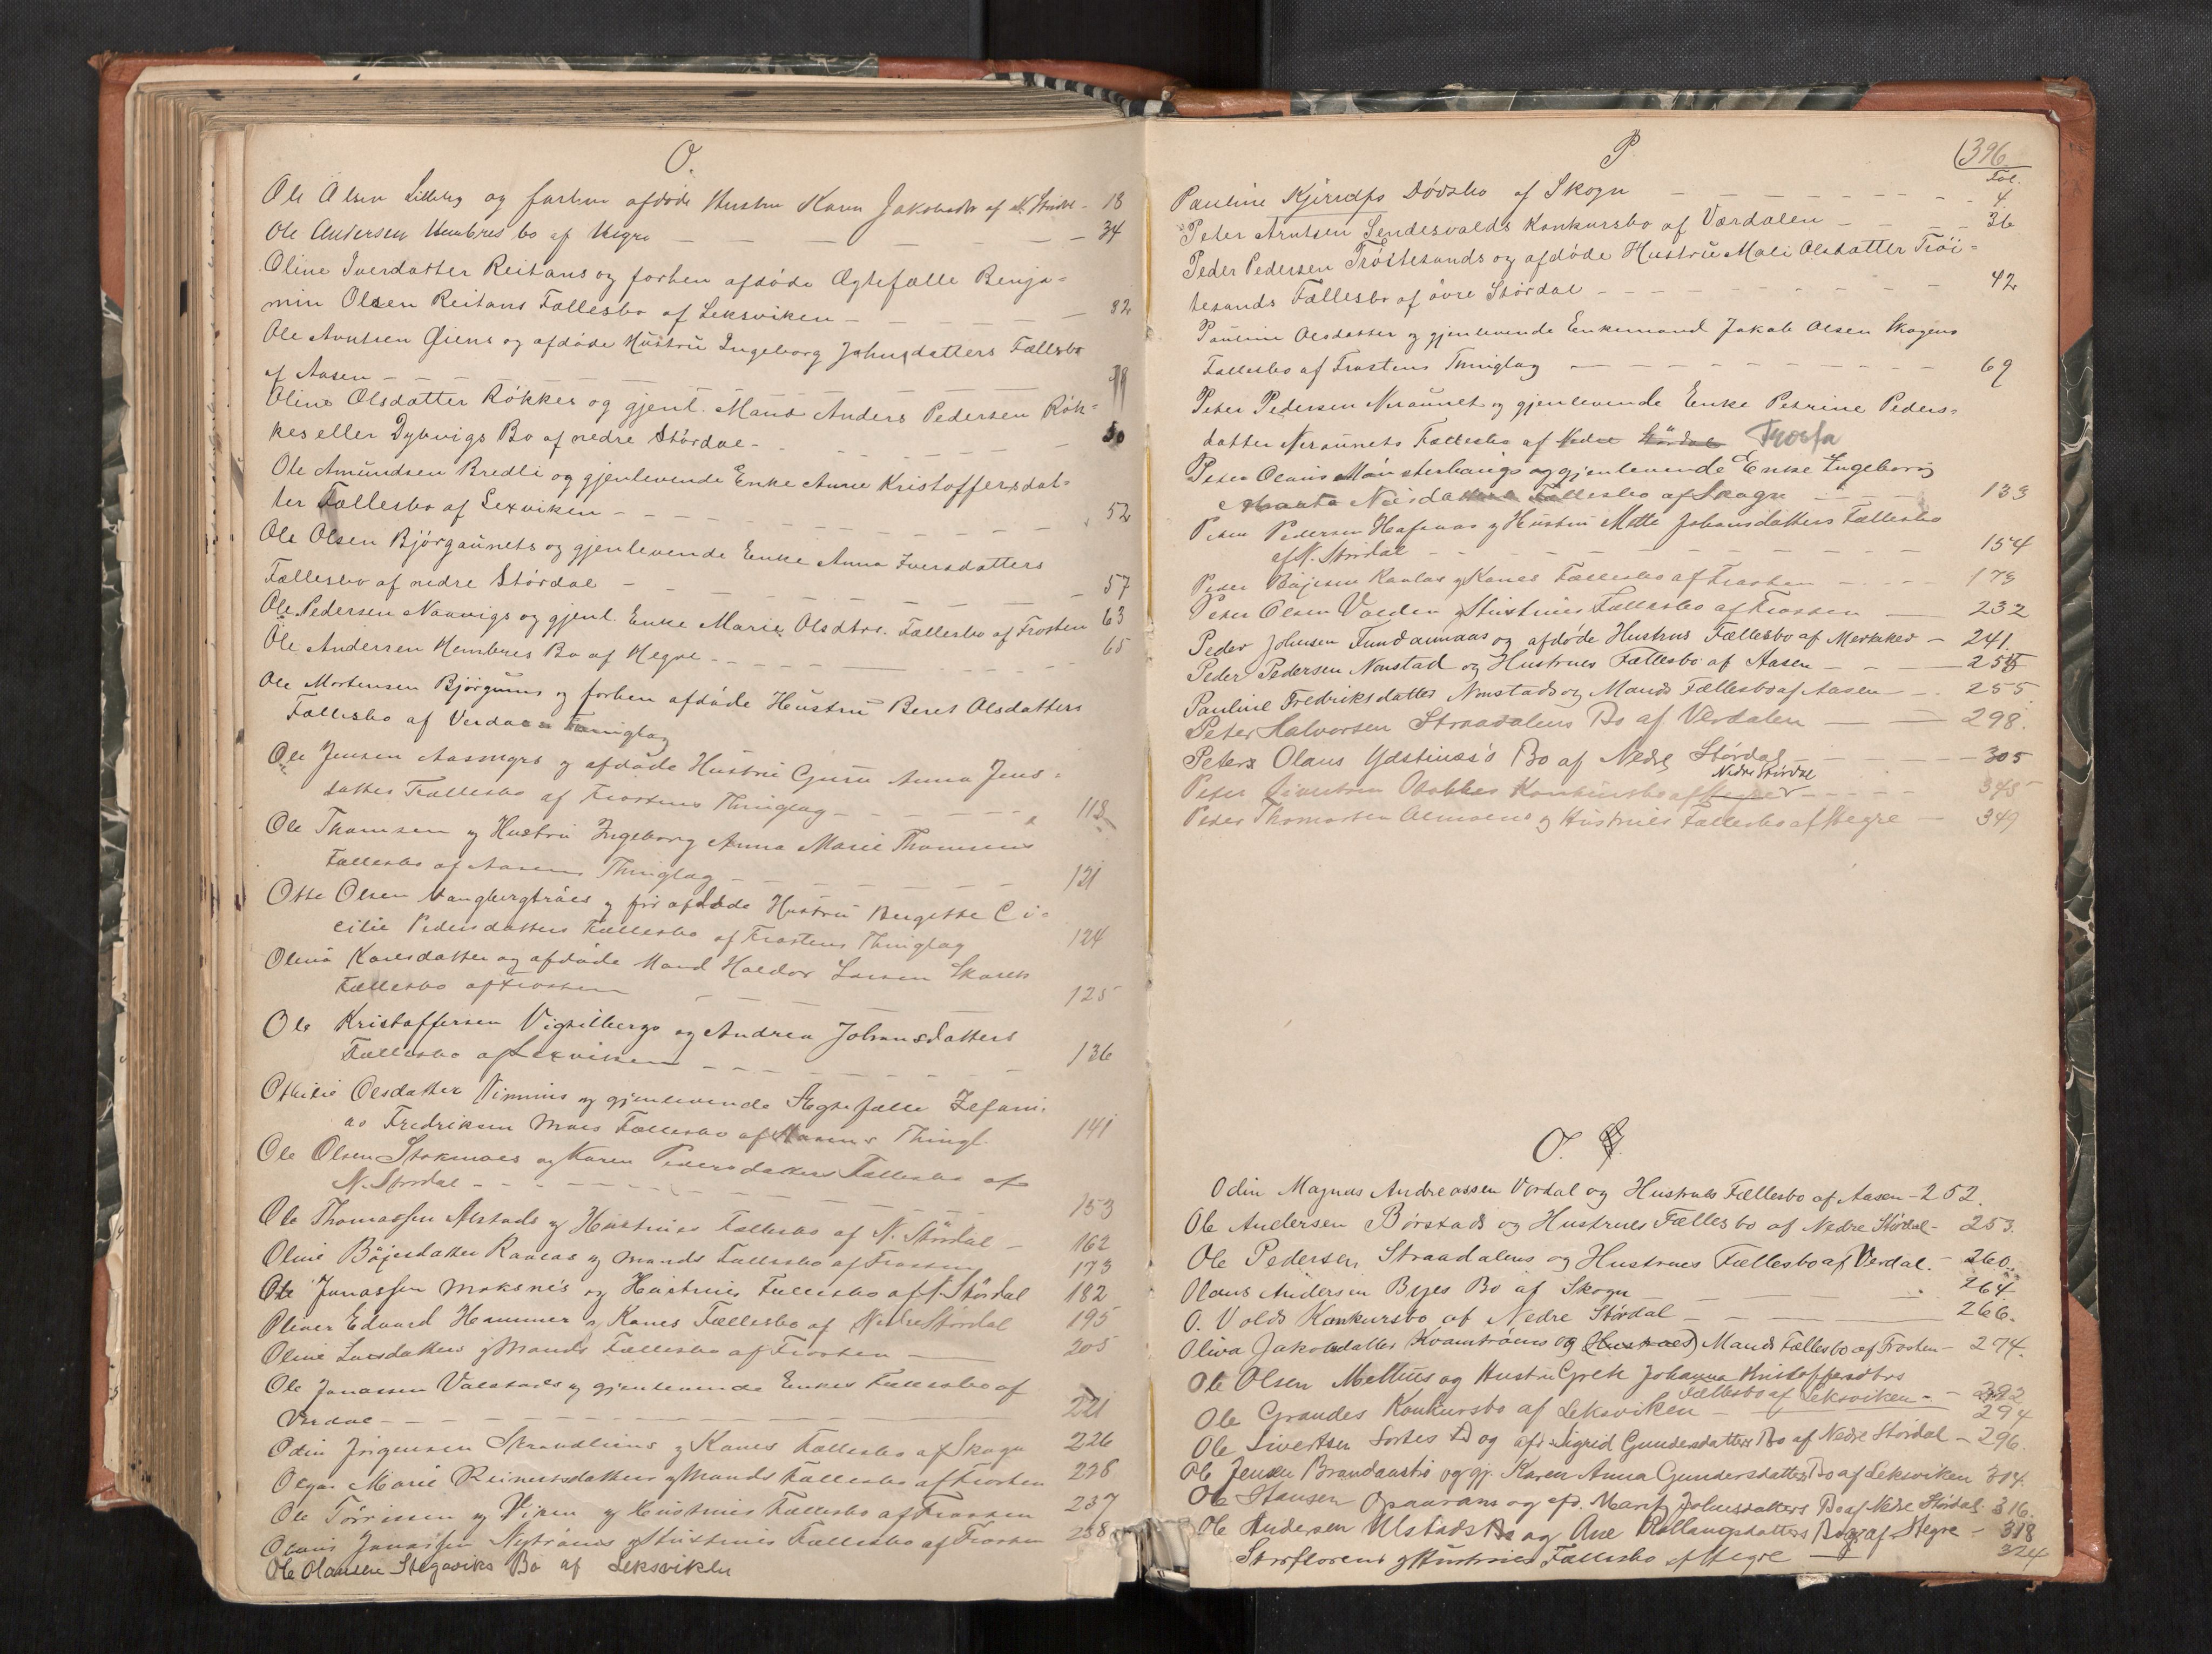 O.
Ole Olsen Lilleby og forhen afdøde Hustru Karen Jakobsdtr af N. Størdal - 18
Ole Andersen Hembres bo af Hegre — — — — 34
Oline Iversdatter Reitans og forhen afdøde Ægtefælle Benja=
min Olsen Reitans Fællesbo af Leksviken — — — — 32
Ole Arntsen Øiens og afdøde Hustru Ingeborg Johnsdatters Fællesbo
af Aasen — — — —
Oline Olsdatter Røkkes og gjenl. Mand Anders Pedersen Røk=
kes eller Dybvigs Bo af nedre Størdal - — — 50
Ole Amundsen Bredli og gjenlevende Enke Anne Kristoffersdat=
ter Fællesbo af Lexviken - — — — 52
Ole Olsen Bjørgaunets og gjenlevende Enke Anna Iversdatters
Fællesbo af nedre Størdal - — — — 57
Ole Pedersen Naavigs og gjenl. Enke Marie Olsdtrs. Fællesbo af Frosten 63
Ole Andersen Hembres Bo af Hegre - — — — 65
Ole Mortensen Bjørgums og forhen afdøde Hustru Beret Olsdatters
Fællesbo af Verdalens Thinglag
Ole Jensen Aasmyrs og afdøde Hustru Guru Anna Jens=
datter Fællesbo af Frostens Thinglag - — — — 118
Ole Thomsen og Hustru Ingeborg Anna Marie Thomsens
Fællesbo af Aasens Thinglag - — — — 121
Otte Olsen Vangbergtrøes og før afdøde Hustru Bergitte Ci=
cilie Pedersdatters Fællesbo af Frostens Thinglag 124
Olina Karlsdatter og afdøde Mand Haldor Larsen Skarets
Fællesbo af Frosten — — — 125
Ole Kristoffersen Vigsilbergs og Andrea Johansdatters
Fællesbo af Lexviken — — — — 136
Othilie Olsdatter Vinnius og gjenlevende Ægtefælle Zefani=
as Fredriksen Moes Fællesbo af Aasens Thingl. 141
Ole Olsen Stokmoes og Karen Pedersdatters Fællesbo af
N. Størdal - — — — 153
Ole Thomassen Alstads og Hustrues Fællesbo af N. Størdal - 162
Oline Böjesdatter Raaens og Mands Fællesbo af Frosten 173
Ole Jonassen Moksnes og Hustrues Fællesbo af N. Størdal 182
Oliver Edvard Hammer og Kones Fællesbo af Nedre Størdal 195
Oline Larsdatters og Mands Fællesbo af Frosten — 205
Ole Jonassen Valstads og gjenlevende Enkes Fællesbo af
Verdal — — — — 221
Odin Jørgensen Strandheims og Kones Fællesbo af Skogn 226
Olga Marie Reinertsdatters og Mands Fællesbo af Frosten 228
Ole Tørrisen Vipen og Hustrues Fællesbo af Frosten 237
Olaus Jonassen Nytrøens og Hustrues Fællesbo af Frosten 238
Ole Olausen Stegaviks Bo af Leksviken
P
396
Fol.
Pauline Kjerulfs Dødsbo af Skogn — — — — 4
Peter Arntsen Lendesvolds Konkursbo af Værdalen — — — 36
Peder Pedersen Trøitesands og afdøde Hustru Mali Olsdatter Trøi=
tesands Fællesbo af øvre Størdal — — — — 42
Pauline Olsdatter og gjenlevende Enkemand Jakob Olsen Skogens
Fællesbo af Frostens Thinglag — — — — 69
Peter Pedersen Neraunet og gjenlevende Enke Petrine Peders=
datter Neraunets Fællesbo af Nedre Størdal Frosta
Peter Olaus Mønsterhaugs og gjenlevende Enke Ingeborg
Marta Nilsdatters Fællesbo af Skogn — — — 133
Peder Pedersen Hofenas og Hustru Mette Johansdatters Fællesbo
af N. Størdal — — — — 154
Peter Böjesen Raaens og Kones Fællesbo af Frosten — — 173
Peter Olsen Valden og Hustrues Fællesbo af Frosten — 232
Peder Johnsen Fundaunaas og afdøde Hustrus Fællesbo af Meraker — 241.
Peder Pedersen Nonstad og Hustrues Fællesbo af Aasen — — 255
Pauline Fredriksdatter Nonstads og Mands Fællesbo af Aasen — 255
Peter Halvorsen Straadalens Bo af Verdalen — — 298.
Peter Olaus Ydstines's Bo af Nedre Størdal — — — 305
Nedre Størdal
Peter Sivertsen Konkursbo af Hegre — — — 345
Peder Thomassen Almoens og Hustrues Fællesbo af Hegre — 349
O.
Odin Magnus Andreassen Vordal og Hustrues Fællesbo af Aasen - 252.
Ole Andersen Børstads og Hustrues Fællesbo af Nedre Størdal - 253.
Ole Pedersen Straadalens og Hustrues Fællesbo af Verdal. - 260.
Olaus Andersen Byes Bo af Skogn — — 264
O. Volds Konkursbo af Nedre Størdal — — 266.
Oliva Jakobsdatter Kvamtrøens og (Hustrues) Mands Fællesbo af Frosten — 274.
Ole Olsen Melhus og Hustru Grete Johanna Kristoffersdtrs
Fællesbo af Leksviken - — 292
Ole Grandes Konkursbo af Leksviken — — 294
Ole Sivertsen Fortes og afd. Sigrid Gundersdatters Bo af Nedre Størdal — 296.
Ole Jensen Brandaustrø og gj. Karen Anna Gundersdatters Bo af Leksviken 314.
Ole Hansen Opaurans og afd. Marit Johnsdatters Bo af Nedre Størdal. 316.
Ole Andersen Ulstads Bo og Ane Rollaugsdatters Bo af Hegre - 318
Storflorens og Hustrues Fællesbo af Hegre — 324